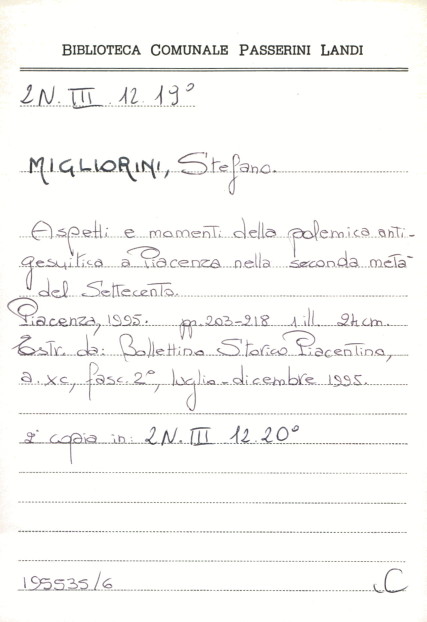 BIBLIOTECA COMUNALE PASSERINI LANDI
2N. III. 12. 19°
MIGLIORINI, Stefano.
Aspetti e momenti della polemica anti-
gesuitica a Piacenza nella seconda metà
del Settecento.
Piacenza, 1995. pp. 203-218 1 ill. 24 cm.
Estr. da: Bollettino Storico Piacentino,
a. XC, fasc. 2°, luglio-dicembre 1995.
2ª copia in: 2N. III 12.20°
195535/6 C